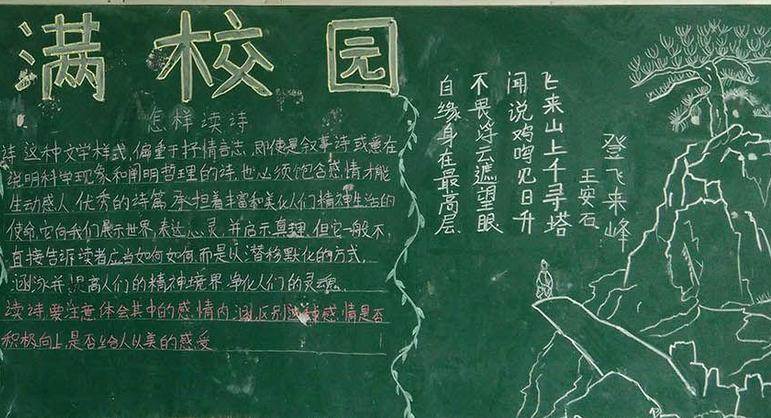 满校园
怎样读诗
诗这种文学样式,偏重于抒情言志,即使是叙事诗或意在
说明科学现象和阐明哲理的诗,也必须饱含感情才能
生动感人.优秀的诗篇,承担着丰富和美化人们精神生活的
使命,它向我们展示世界,表达心灵,并启示真理.但它一般不
直接告诉读者应当如何如何而是以潜移默化的方式,
涵泳并提高人们的精神境界,净化人们的灵魂.
读诗要注意体会其中的感情内涵,区别感情是否
积极向上,是否给人以美的感受
登飞来峰
王安石
飞来山上千寻塔
闻说鸡鸣见日升
不畏浮云遮望眼
自缘身在最高层